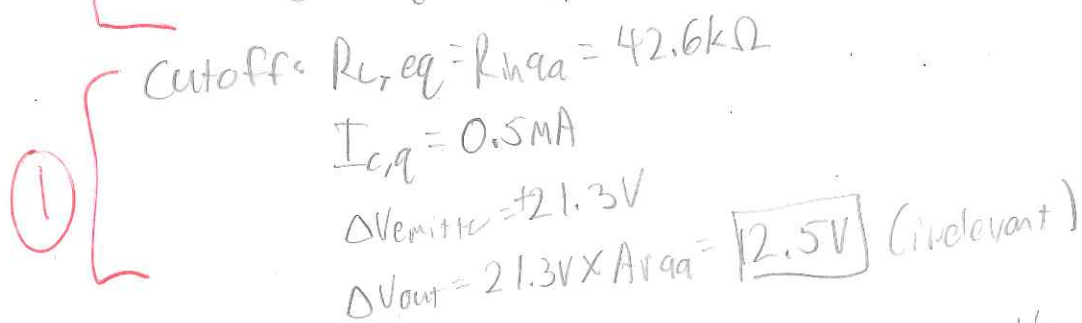 Cutoff: RL, eq = Rinqa = 42.6kΩ
Ic,q = 0.5mA
ΔVemitter = +21.3V
① ΔVout = 21.3V x Avqa = 12.5V (irrelevant)